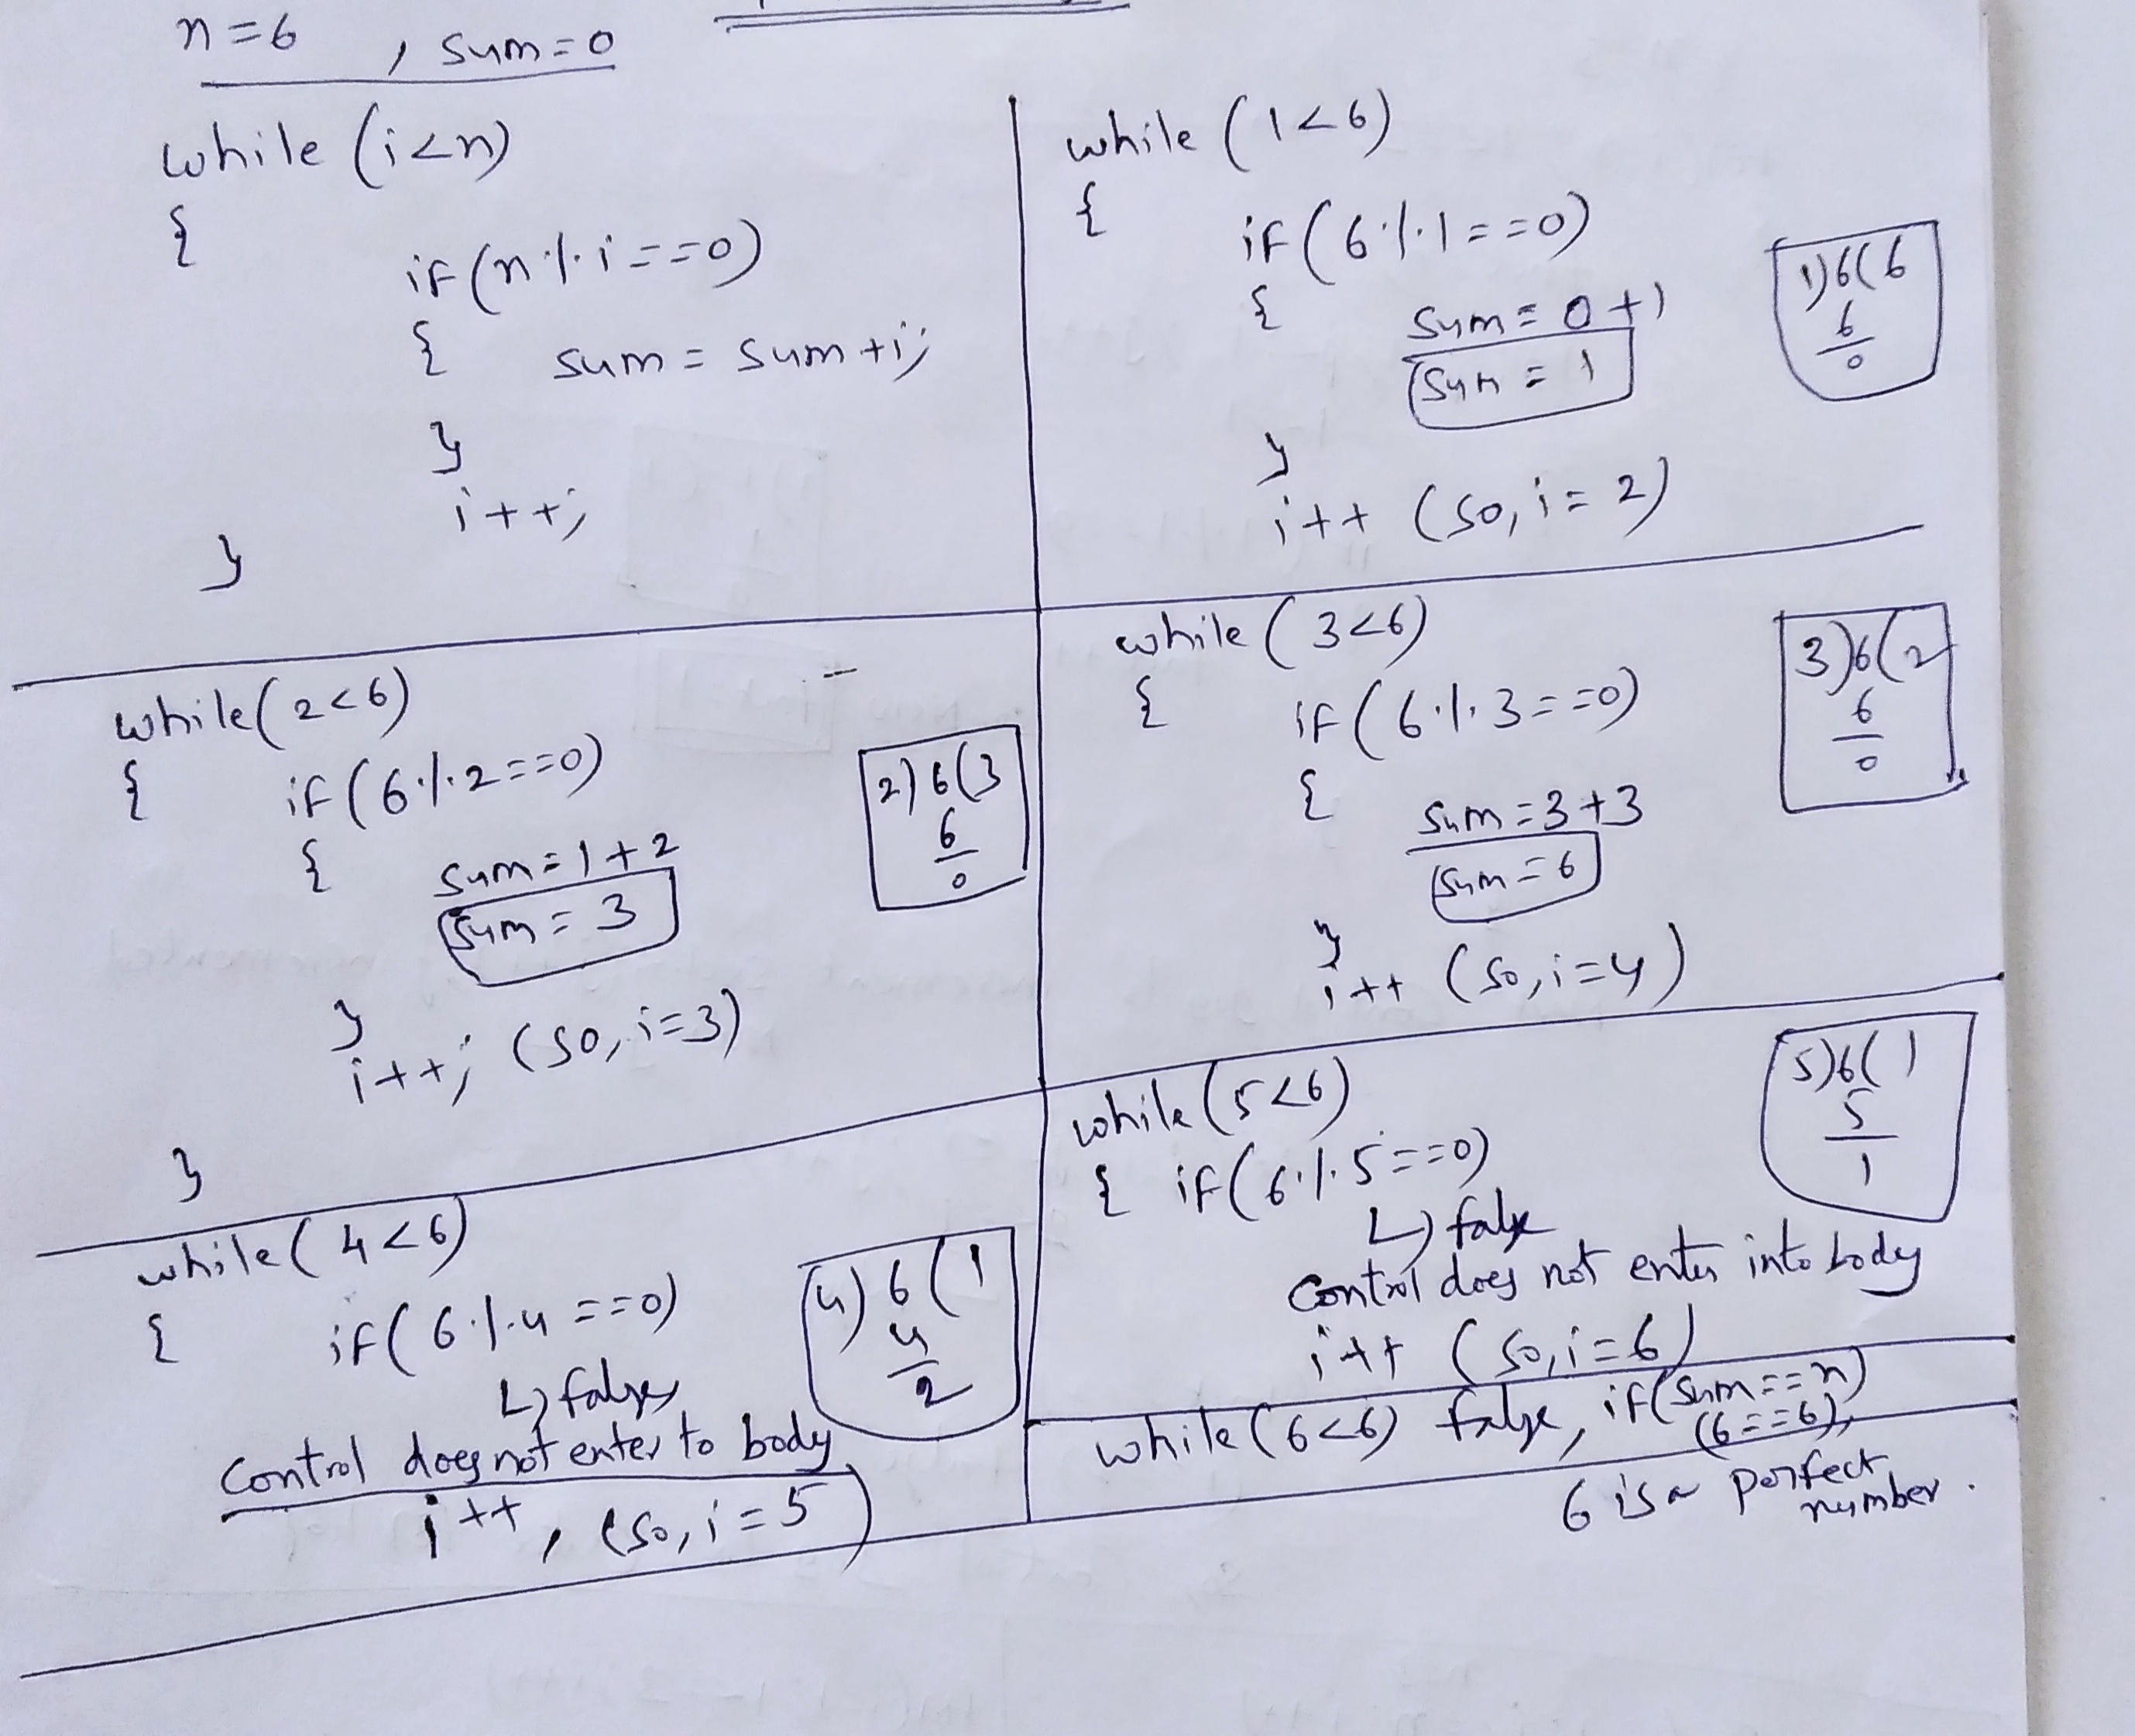 n=6 , sum=0
while (i<n)
{
if(n%i==0)
{ sum = sum+i;
}
i++;
}
while (1<6)
{
if(6%1==0)
{ sum=0+1
sum=1
}
i++ (so, i=2)
1)6(6
6
0
while(2<6)
{ if(6%2==0)
{ sum=1+2
sum=3
}
i++; (so, i=3)
}
2)6(3
6
0
while(3<6)
{ if(6%3==0)
{ sum=3+3
sum=6
}
i++ (so, i=4)
3)6(2
6
0
while(4<6)
{ if(6%4==0)
↳ false
control does not enter to body
i++, (so, i=5)
4)6(1
4
2
while(5<6)
{ if(6%5==0)
↳ false
control does not enter into body
i++ (so, i=6)
5)6(1
5
1
while(6<6) false, if(sum==n)
(6==6),
6 is a perfect
number.